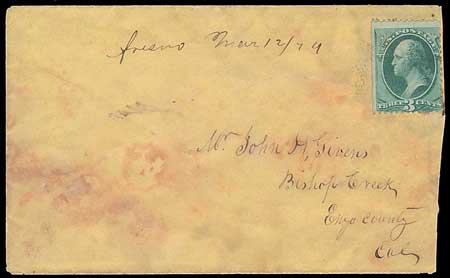 fresno Mar 12/79
U.S. POSTAGE
THREE 3 CENTS
Mr John H, Givens
Bishop Creek
Enyo County
Cal